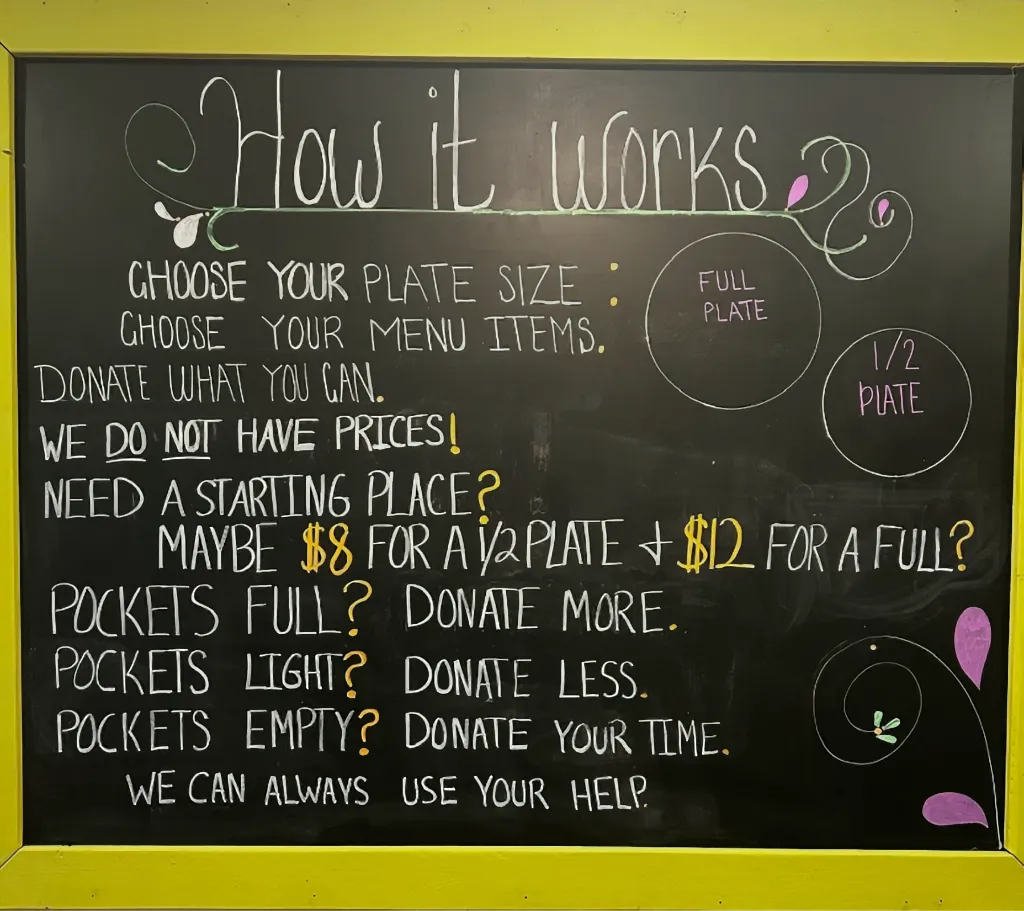 How it works
CHOOSE YOUR PLATE SIZE :
FULL
PLATE
CHOOSE YOUR MENU ITEMS.
1/2
PLATE
DONATE WHAT YOU CAN.
WE DO NOT HAVE PRICES!
NEED A STARTING PLACE?
MAYBE $8 FOR A 1/2 PLATE + $12 FOR A FULL?
POCKETS FULL? DONATE MORE.
POCKETS LIGHT? DONATE LESS.
POCKETS EMPTY? DONATE YOUR TIME.
WE CAN ALWAYS USE YOUR HELP.